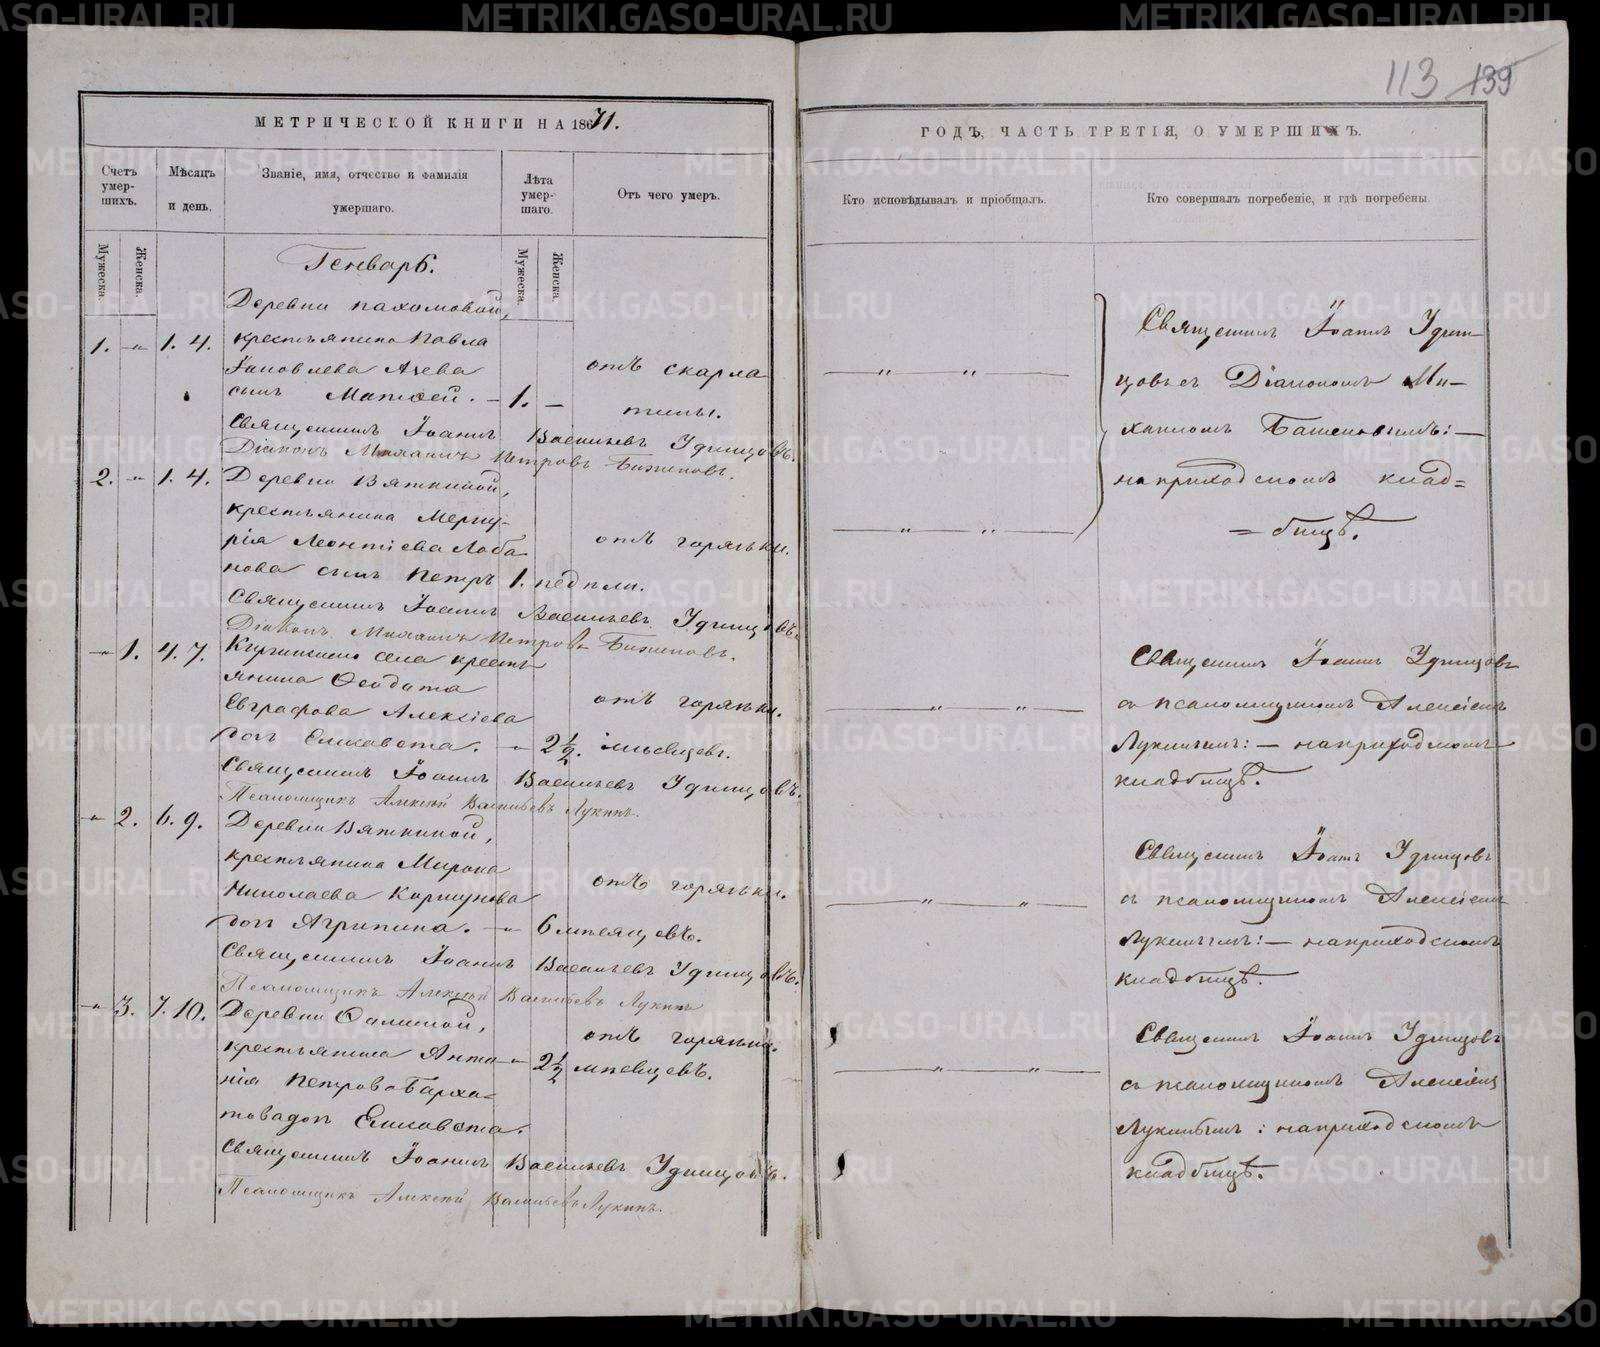 113 139
МЕТРИЧЕСКОЙ КНИГИ НА 1871.
ГОДЪ, ЧАСТЬ ТРЕТІЯ, О УМЕРШИХЪ.
Счетъ умершихъ.
Мѣсяцъ и день.
Званіе, имя, отчество и фамилія умершаго.
Лѣта умершаго.
Отъ чего умеръ.
Кто исповѣдывалъ и пріобщалъ.
Кто совершалъ погребеніе, и гдѣ погребены.
Мужеска. Женска. Мужеска. Женска.
Генварь.
Деревни Пахомовой,
1. -„- 1. 4. крестьянина Павла
Іаковлева Ачева
сынъ Матѳей. - 1. -
отъ скарла
тины.
Священникъ Іоаннъ Васильевъ Удинцовъ.
Діаконъ Михаилъ Петровъ Баженовъ.
2. -„- 1. 4. Деревни Вяткиной,
крестьянина Мерку-
рія Леонтіева Лоба
нова сынъ Петръ 1. недѣли.
отъ горячки.
Священникъ Іоаннъ Васильевъ Удинцовъ.
Діаконъ Михаилъ Петровъ Баженовъ.
-„- 1. 4. 7. села кресть
янина Ѳеодота
Евграфова Алексіева
дочь Елисавета. -„- 2½. мѣсяцевъ.
отъ горячки.
Священникъ Іоаннъ Васильевъ Удинцовъ.
Псаломщикъ Алексѣй Васильевъ Лукинъ.
-„- 2. 6. 9. Деревни Вяткиной,
крестьянина Мирона
Николаева Коршунова
дочь Агрипина. -„- 6 мѣсяцевъ.
отъ горячки.
Священникъ Іоаннъ Васильевъ Удинцовъ.
Псаломщикъ Алексѣй Васильевъ Лукинъ
-„- 3. 7. 10. Деревни Ѳалиной,
крестьянина Анто -„- 2½ мѣсяцевъ.
нія Петрова Барха=
това дочь Елисавета.
отъ горячки.
Священникъ Іоаннъ Васильевъ Удинцовъ.
Псаломщикъ Алексѣй Васильевъ Лукинъ.
Священникъ Іоаннъ Удин-
цовъ съ Діакономъ Ми-
хаиломъ Баженовымъ: -
на приходскомъ клад=
=бищѣ.
Священникъ Іоаннъ Удинцовъ
съ псаломщикомъ Алексіемъ
Лукинымъ: - на приходскомъ
кладбищѣ.
Священникъ Іоаннъ Удинцовъ
съ псаломщикомъ Алексіемъ
Лукинымъ: - на приходскомъ
кладбищѣ.
Священникъ Іоаннъ Удинцовъ
съ псаломщикомъ Алексіемъ
Лукинымъ: на приходскомъ
кладбищѣ.
METRIKI.GASO-URAL.RU